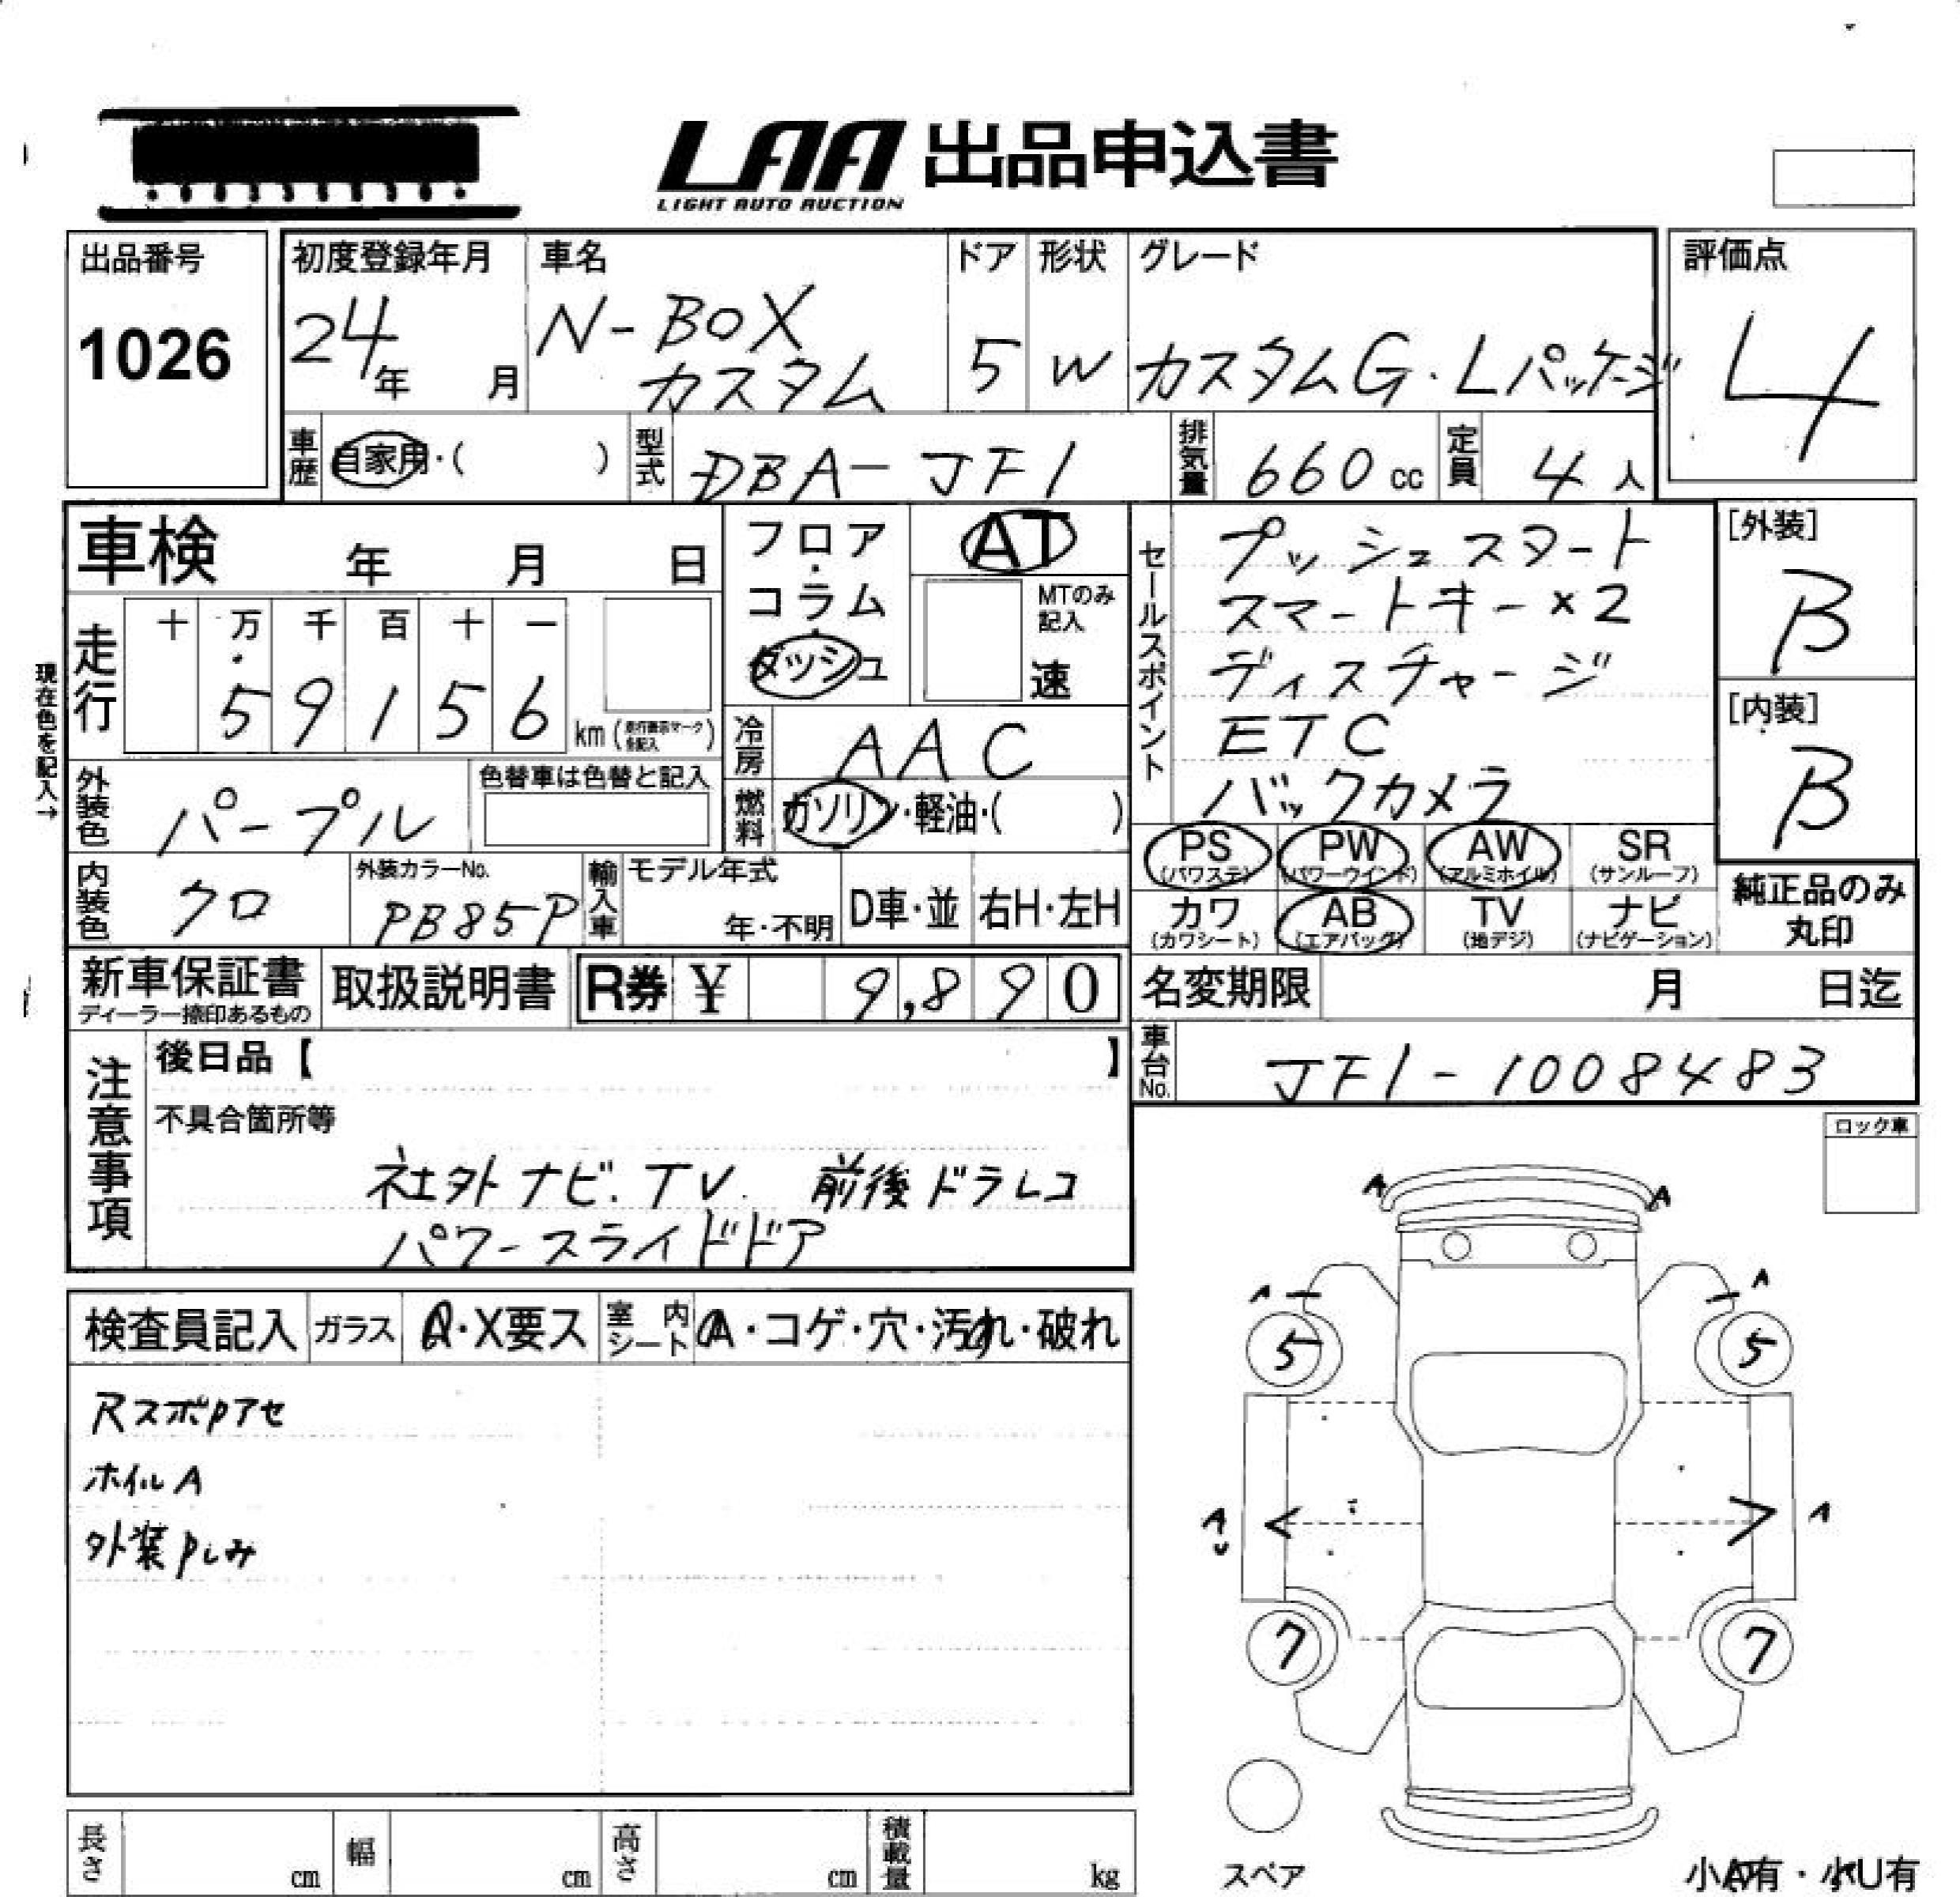 LAA 出品申込書
LIGHT AUTO AUCTION
出品番号
1026
初度登録年月
24年 月
車名
N-BOX
カスタム
ドア
5
形状
W
グレード
カスタムG・Lパッケージ
評価点
4
車歴 自家用・( )
型式 DBA-JF1
排気量 660 cc
定員 4 人
車検 年 月 日
フロア・コラム・ダッシュ
AT
MTのみ記入
速
走行
十 万 千 百 十 一
5 9 1 5 6 km
現在色を記入→
冷房 AAC
外装色 パープル
色替車は色替と記入
燃料 ガソリン・軽油・( )
内装色 クロ
外装カラーNo.
PB85P
輸入車
モデル年式
年・不明
D車・並
右H・左H
セールスポイント
プッシュスタート
スマートキー×2
ディスチャージ
ETC
バックカメラ
[外装]
B
[内装]
B
PS (パワステ)
PW (パワーウインド)
AW (アルミホイル)
SR (サンルーフ)
カワ (カワシート)
AB (エアバッグ)
TV (地デジ)
ナビ (ナビゲーション)
純正品のみ
丸印
新車保証書
ディーラー捺印あるもの
取扱説明書
R券 ¥ 9,890
名変期限 月 日迄
車台No. JF1-1008483
注意事項
後日品【 】
不具合箇所等
社外ナビ.TV. 前後ドラレコ
パワースライドドア
ロック車
検査員記入
ガラス
A・X要ス
室内シート
A・コゲ・穴・汚れ・破れ
RスポPアセ
ホイルA
外装Pしみ
A A
A A
5 5
A U A
7 7
スペア
小A有・小U有
長さ cm
幅 cm
高さ cm
積載量 kg